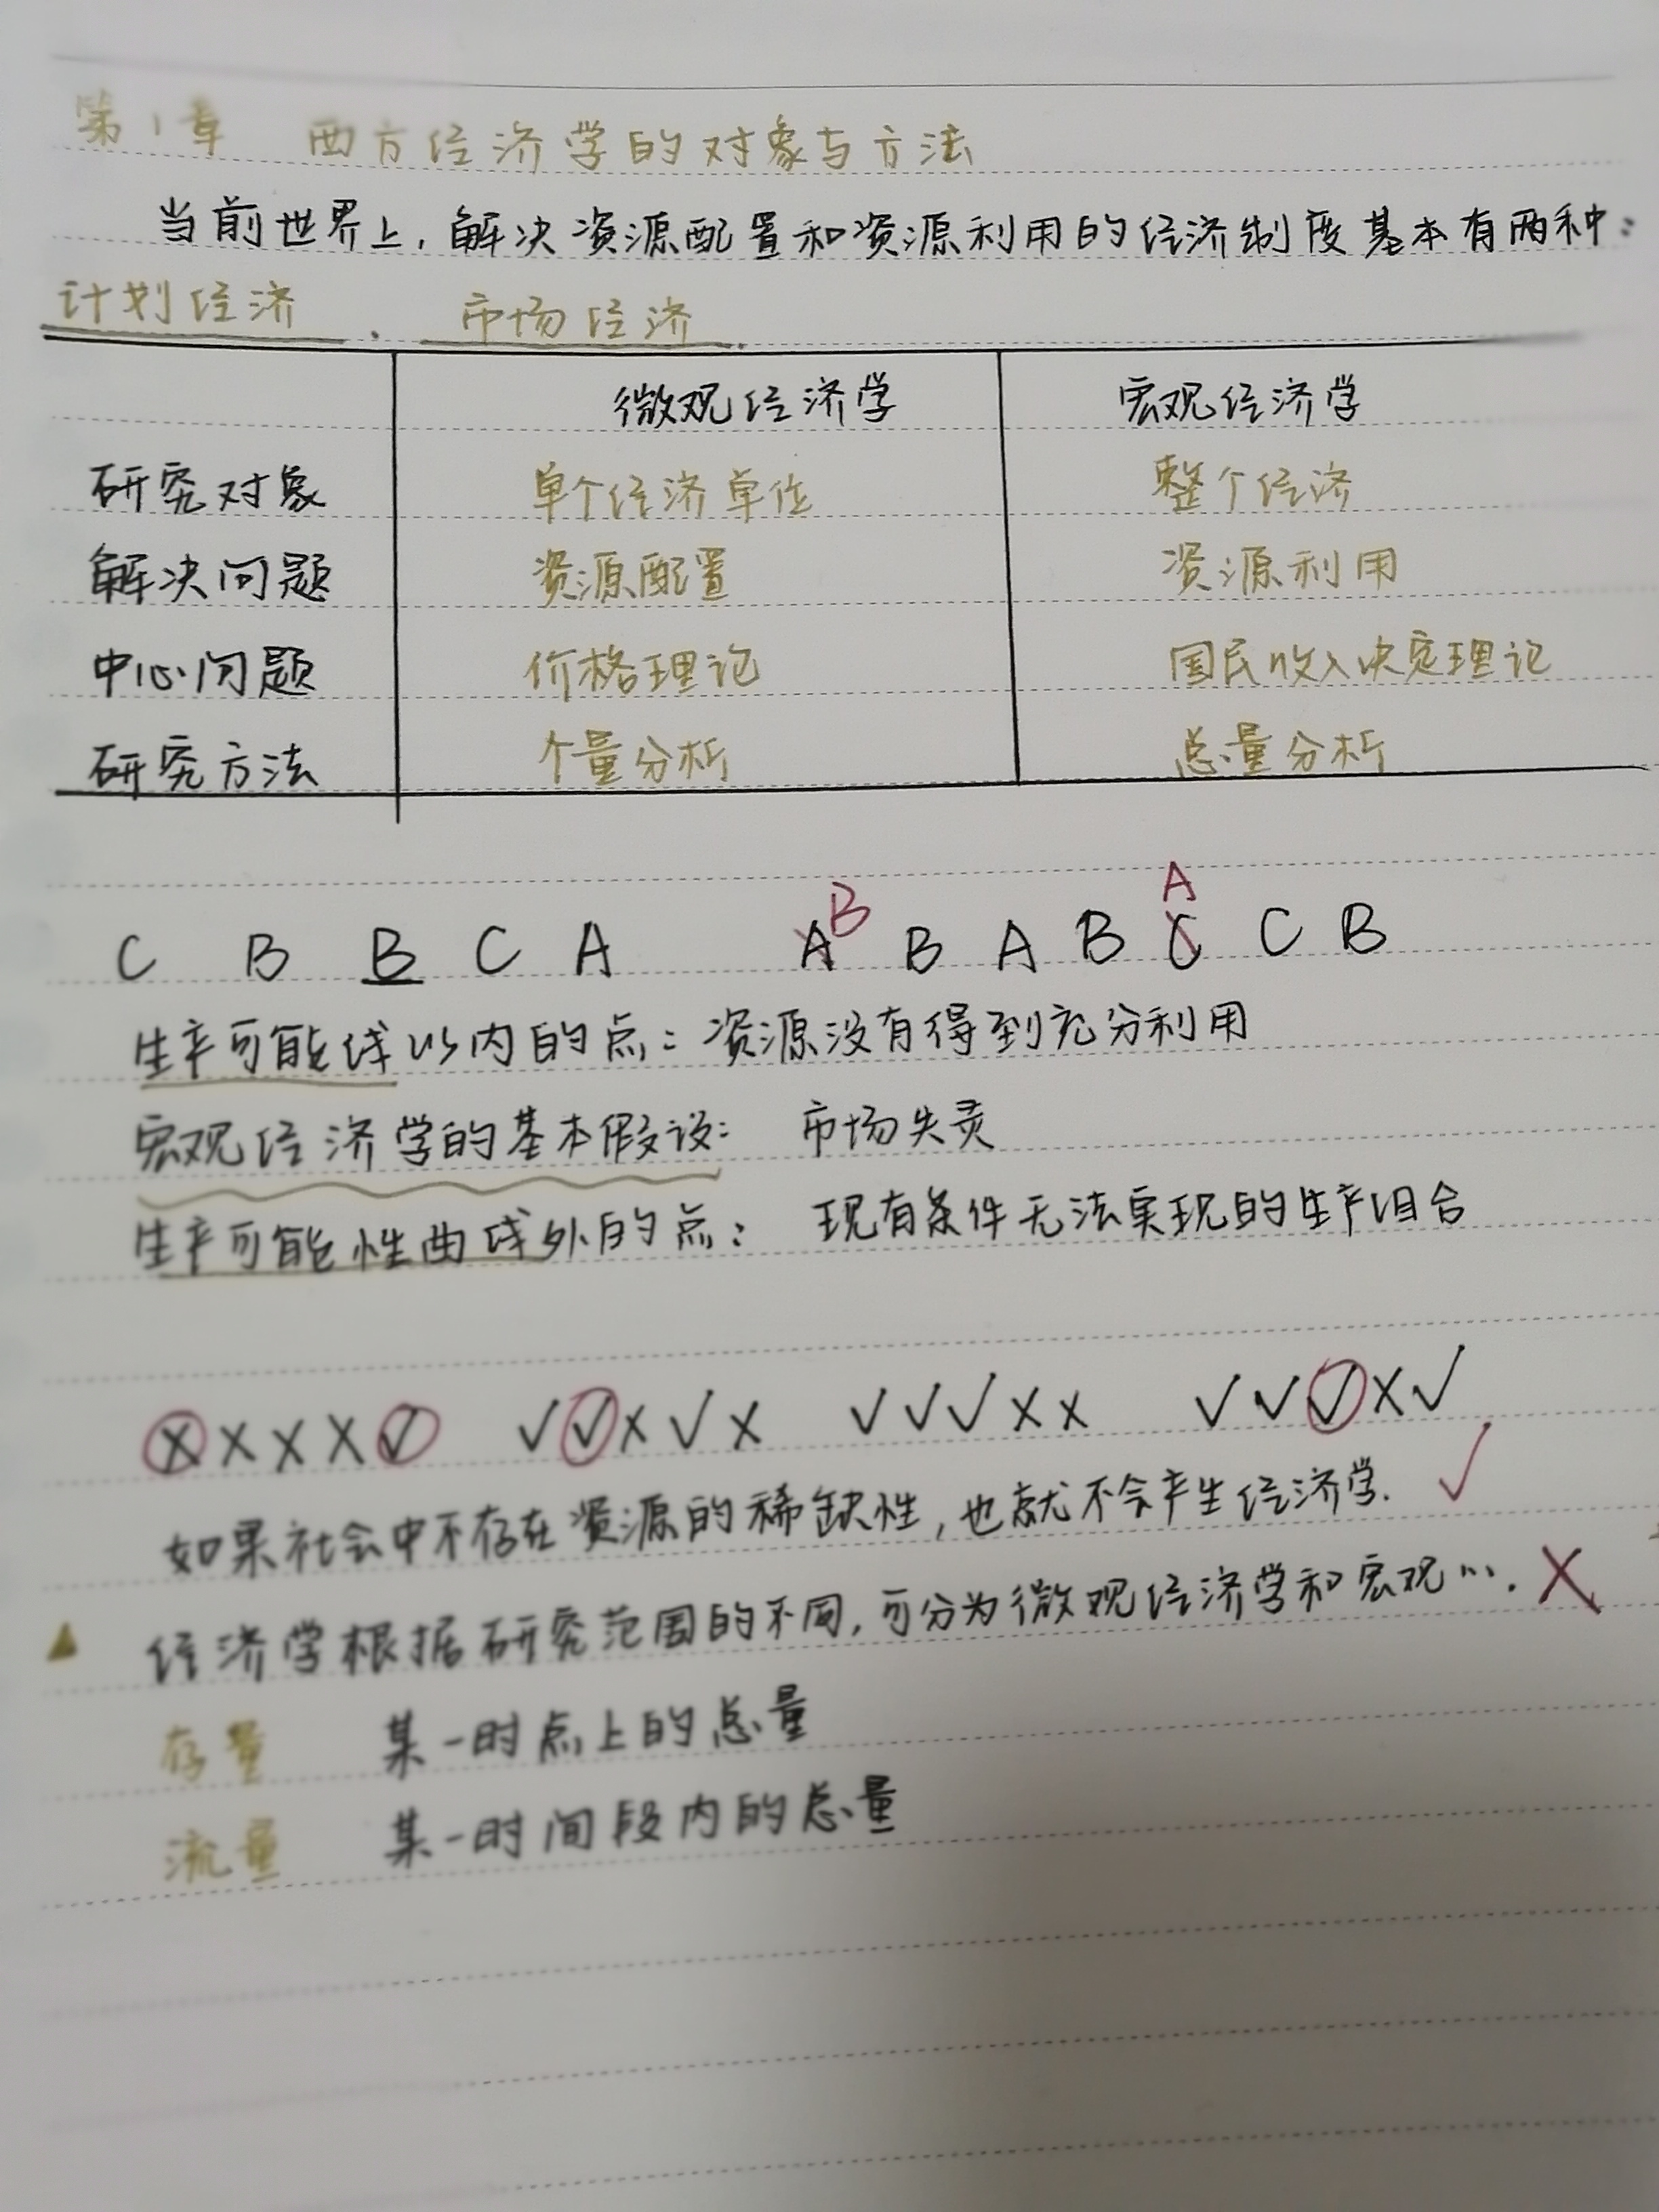 第1章 西方经济学的对象与方法
当前世界上,解决资源配置和资源利用的经济制度基本有两种:
计划经济 . 市场经济.
微观经济学 宏观经济学
研究对象 单个经济单位 整个经济
解决问题 资源配置 资源利用
中心问题 价格理论 国民收入决定理论
研究方法 个量分析 总量分析
B A
C B B C A A B A B C C B
生产可能线以内的点:资源没有得到充分利用
宏观经济学的基本假设: 市场失灵
生产可能性曲线外的点: 现有条件无法实现的生产组合
××××✓ ✓✓×✓× ✓✓✓×× ✓✓✓×✓
如果社会中不存在资源的稀缺性,也就不会产生经济学. ✓
▲ 经济学根据研究范围的不同,可分为微观经济学和宏观…. ×
存量 某一时点上的总量
流量 某一时间段内的总量